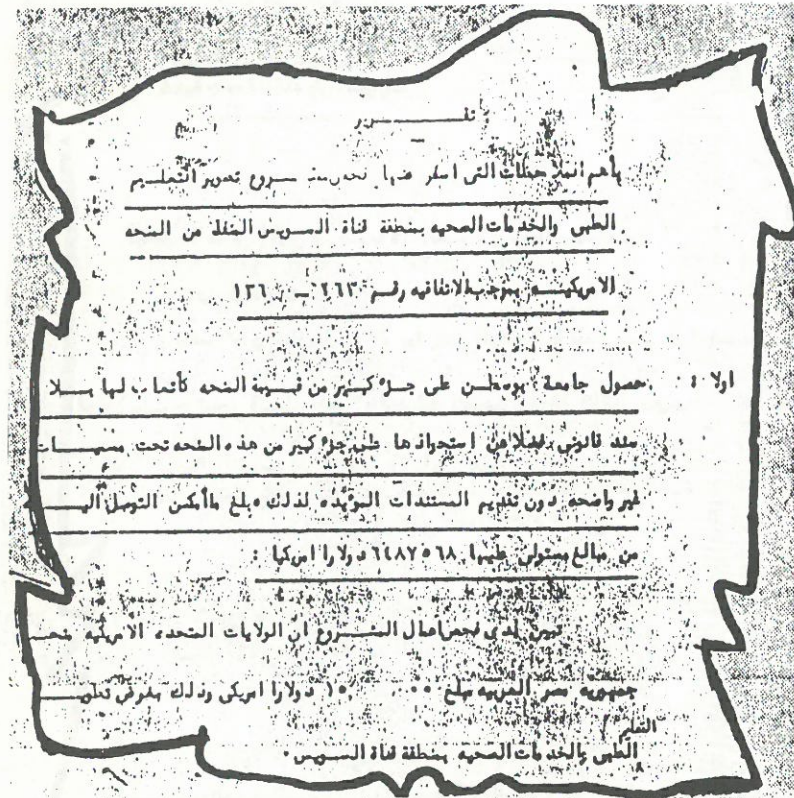 تقـــــرير
بأهم الملاحظات التى اسفر عنها فحص مشروع تطوير التعليم
الطبى والخدمات الصحيه بمنطقة قناة السويس المنفذ من المنحه
الامريكيــه بموجب الاتفاقيه رقم ٢٦٣ ــ ١٣٦
اولا : حصول جامعة بوسطن على جزء كبير من قيمة المنحه كأتعاب لها بــلا
سند قانونى فضلا عن استحواذها على جزء كبير من هذه المنحه تحت مسميــات
غير واضحه دون تقديم المستندات المؤيده لذلك وبلغ ماأمكن التوصل اليــ
من مبالغ مستولى عليها ٦٤٨٧٥٦٨ دولارا امريكيا :
تبين لدى فحص اعمال المشــروع ان الولايات المتحده الامريكيه منحــ
جمهورية مصر العربيه مبلغ دولارا امريكى وذلك بغرض تطويــ
التعليم
الطبى والخدمات الصحيه بمنطقة قناة السويس.